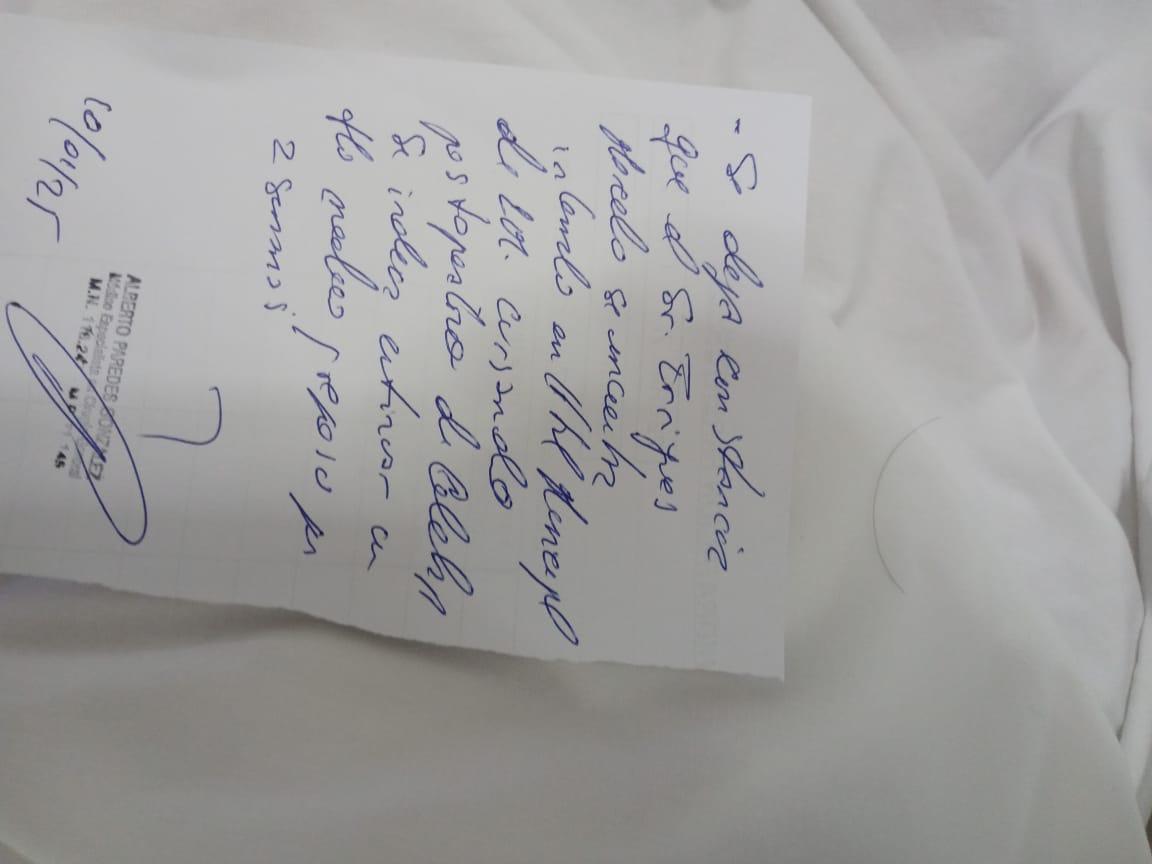 - Se deja constancia
que el Sr. Enriques
Marcelo se encuentra
internado en Htal Municipal
de Lot. cursando
postoperatorio de
Se indica continuar en
Hto medico / reposo por
2 semanas.
10/01/25
ALBERTO PAREDES GONZALEZ
Médico Especialista en Cirugía General
M.N. 116.24